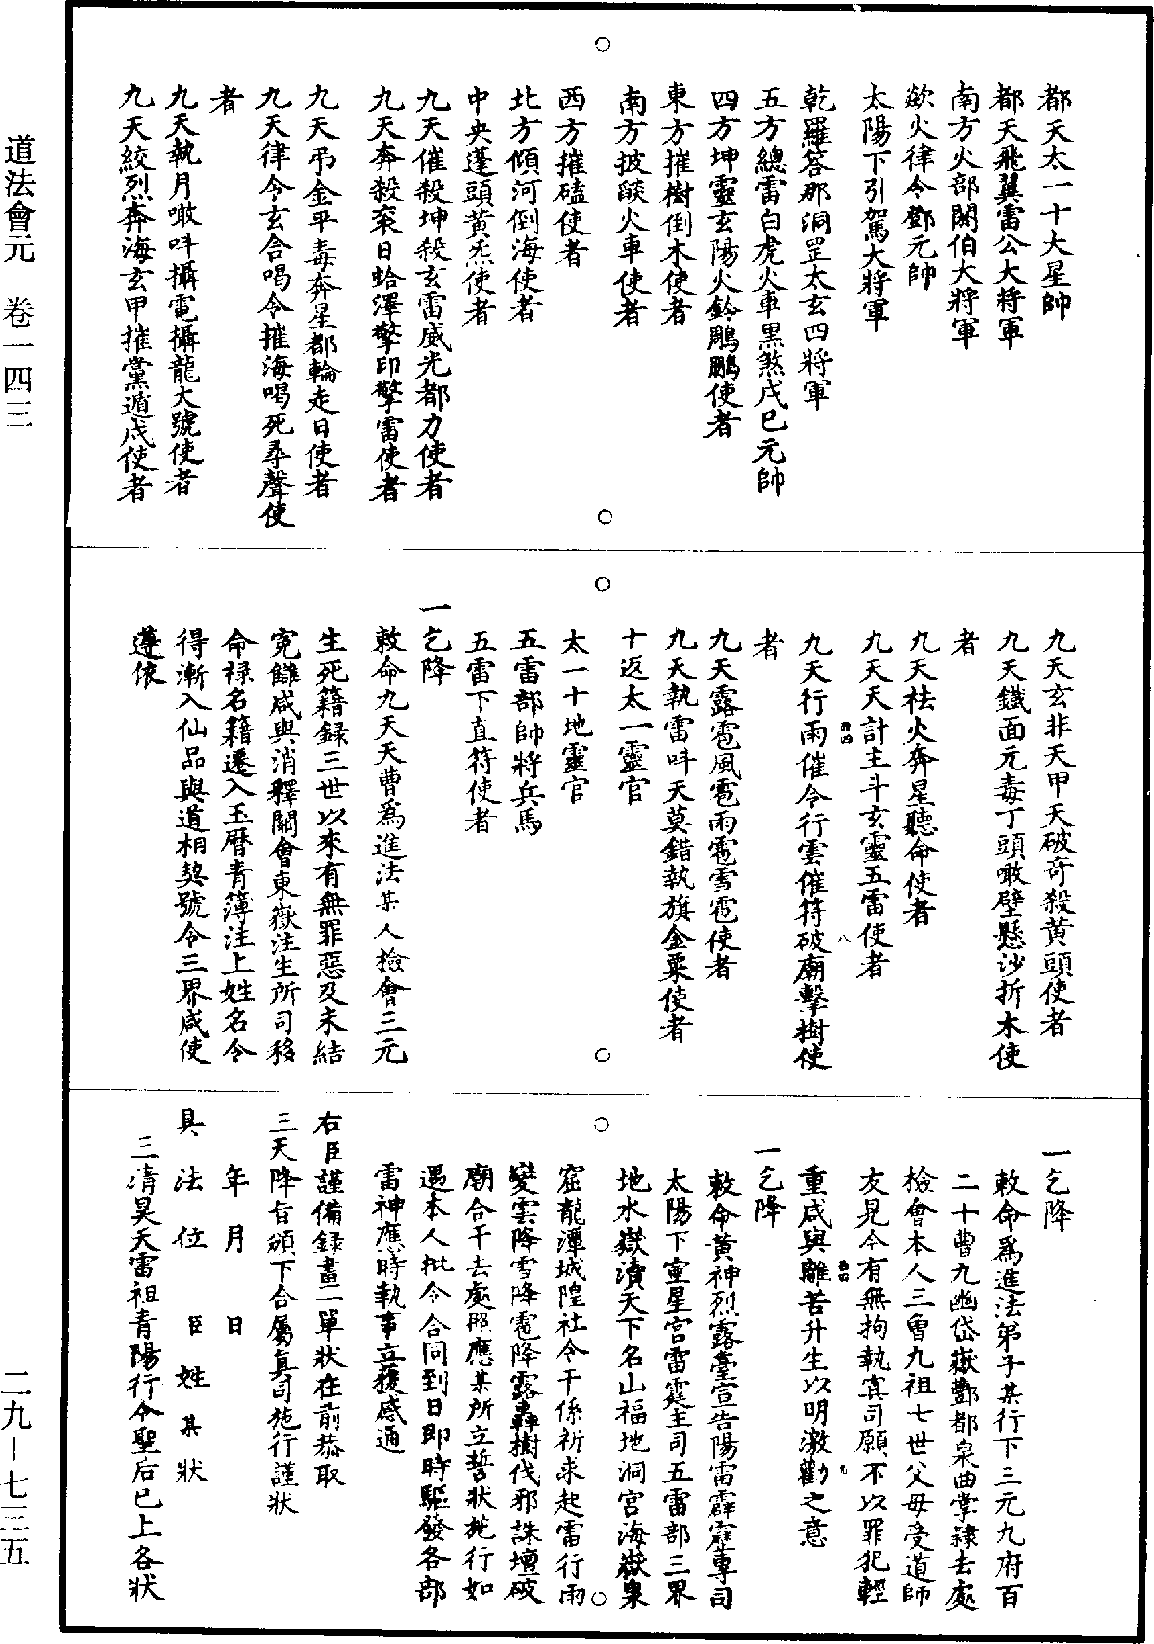 道法會元　卷一四三
二九－七三五
都天太一十大星帥
都天飛翼雷公大將軍
南方火部閼伯大將軍
欻火律令鄧元帥
太陽下引駕大將軍
乾羅答那洞罡太玄四將軍
五方總雷白虎火車黑煞戊己元帥
四方坤靈玄陽火鈴鵰鵬使者
東方摧樹倒木使者
南方披燄火車使者
西方摧磕使者
北方傾河倒海使者
中央蓬頭黃炁使者
九天催殺坤殺玄雷威光都力使者
九天奔殺衮日蛤澤擎印擎雷使者
九天弔金平毒奔星都輪走日使者
九天律令玄合喝令摧海喝死尋聲使
者
九天執月噉吽攝電攝龍大號使者
九天絞烈奔海玄甲摧黨遁戊使者
九天玄非天甲天破奇殺黃頭使者
九天鐵面元毒丁頭噉壁懸沙折木使
者
九天祛火奔星聽命使者
九天天計主斗玄靈五雷使者
九天行雨催令行雲催符破廟擊樹使
者
九天露雹風雹雨雹雪雹使者
九天執雷吽天莫錯執旗金粟使者
十返太一靈官
太一十地靈官
五雷部帥將兵馬
五雷下直符使者
一乞降
敕命九天天曹爲進法某人檢會三元
生死籍錄三世以來有無罪惡及未結
寃讎咸與消釋關會東嶽注生所司移
命祿名籍遷入玉曆青簿注上姓名令
得漸入仙品與道相契號令三界咸使
遵依
一乞降
敕命爲進法弟子某行下三元九府百
二十曹九幽岱嶽酆都泉曲掌隸去處
檢會本人三曾九祖七世父母受道師
友見今有無拘執寘司願不以罪犯輕
重咸與離苦升生以明激勸之意
一乞降
敕命黃神烈露臺宣告陽雷霹靂專司
太陽下童星宮雷霆主司五雷部三界
地水嶽瀆天下名山福地洞宮海嶽泉
窟龍潭城隍社令干係祈求起雷行雨
變雲降雪降雹降露轟樹伐邪誅壇破
廟合干去處照應某所立誓狀施行如
遇本人批令合同到日即時驅發各部
雷神應時執事立獲感通
右臣謹備錄畫一單狀在前恭取
三天降旨頒下合屬真司施行謹狀
年　月　日
具　法　位　臣　姓　某　狀
三清昊天雷祖青陽行令聖后已上各狀